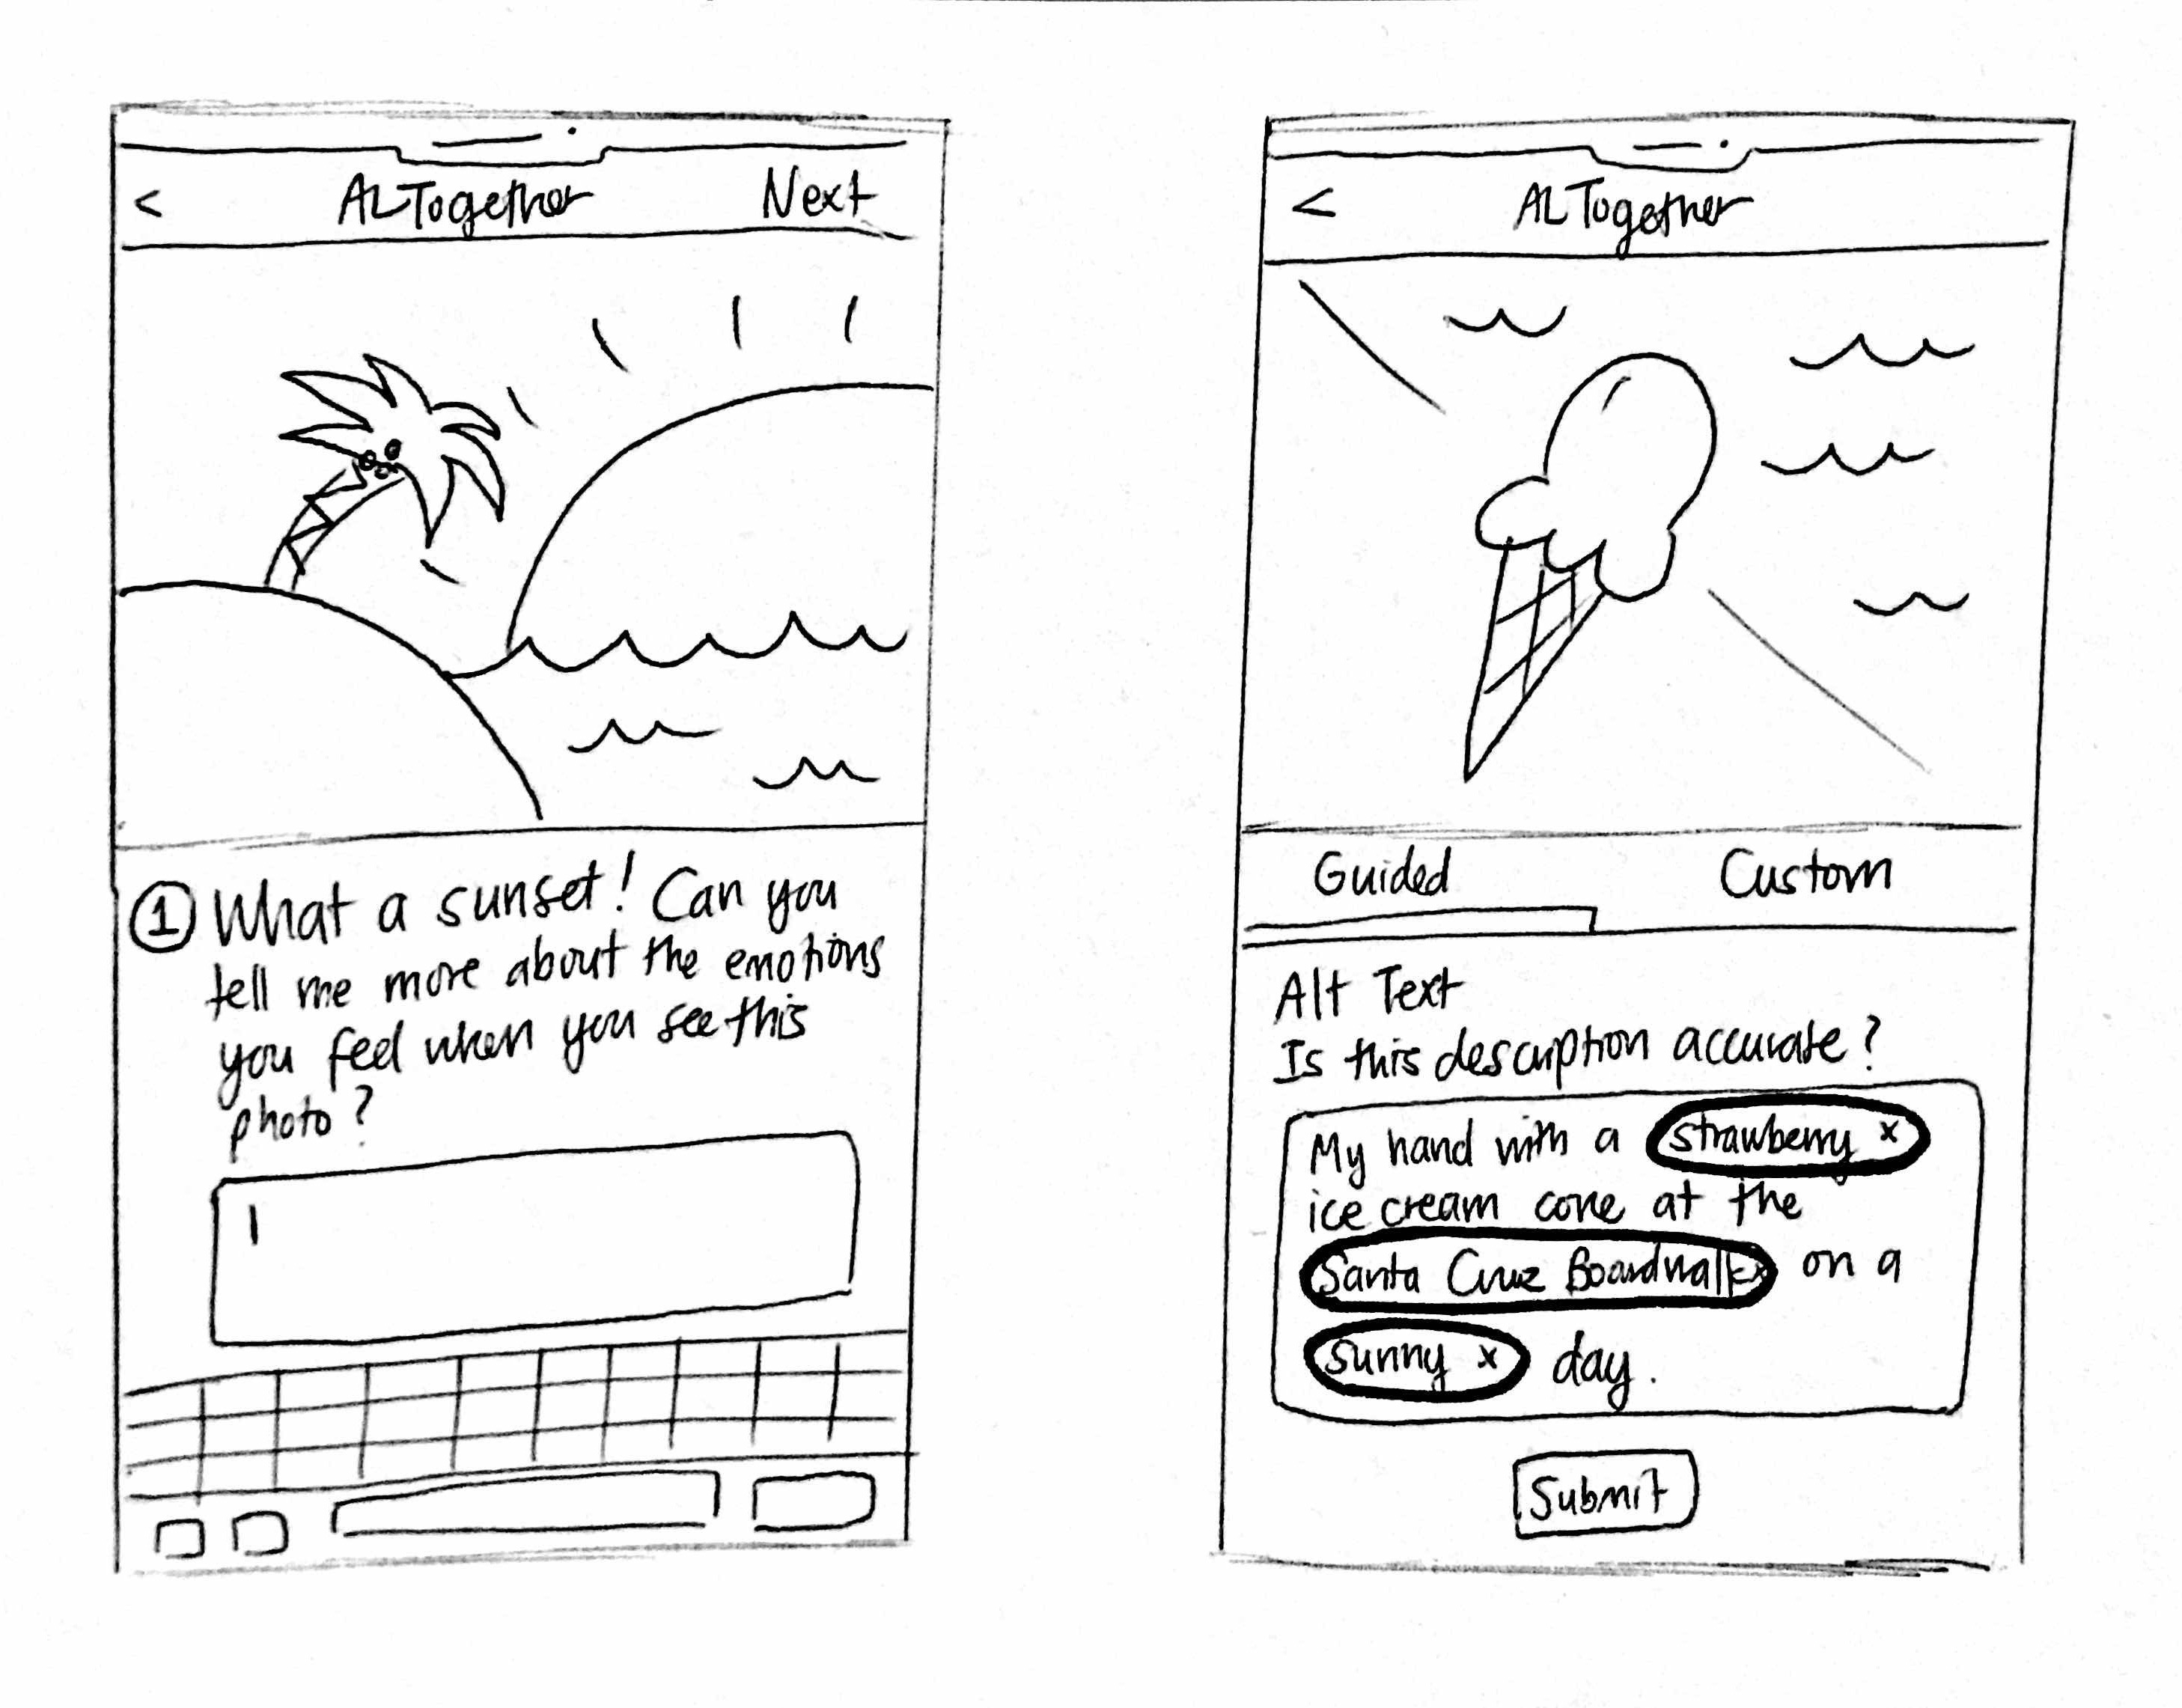 < ALTogether Next
① What a sunset! Can you
tell me more about the emotions
you feel when you see this
photo?
< ALTogether
Guided Custom
Alt Text
Is this description accurate?
My hand with a strawberry x
ice cream cone at the
Santa Cruz Boardwalk x on a
sunny x day.
Submit